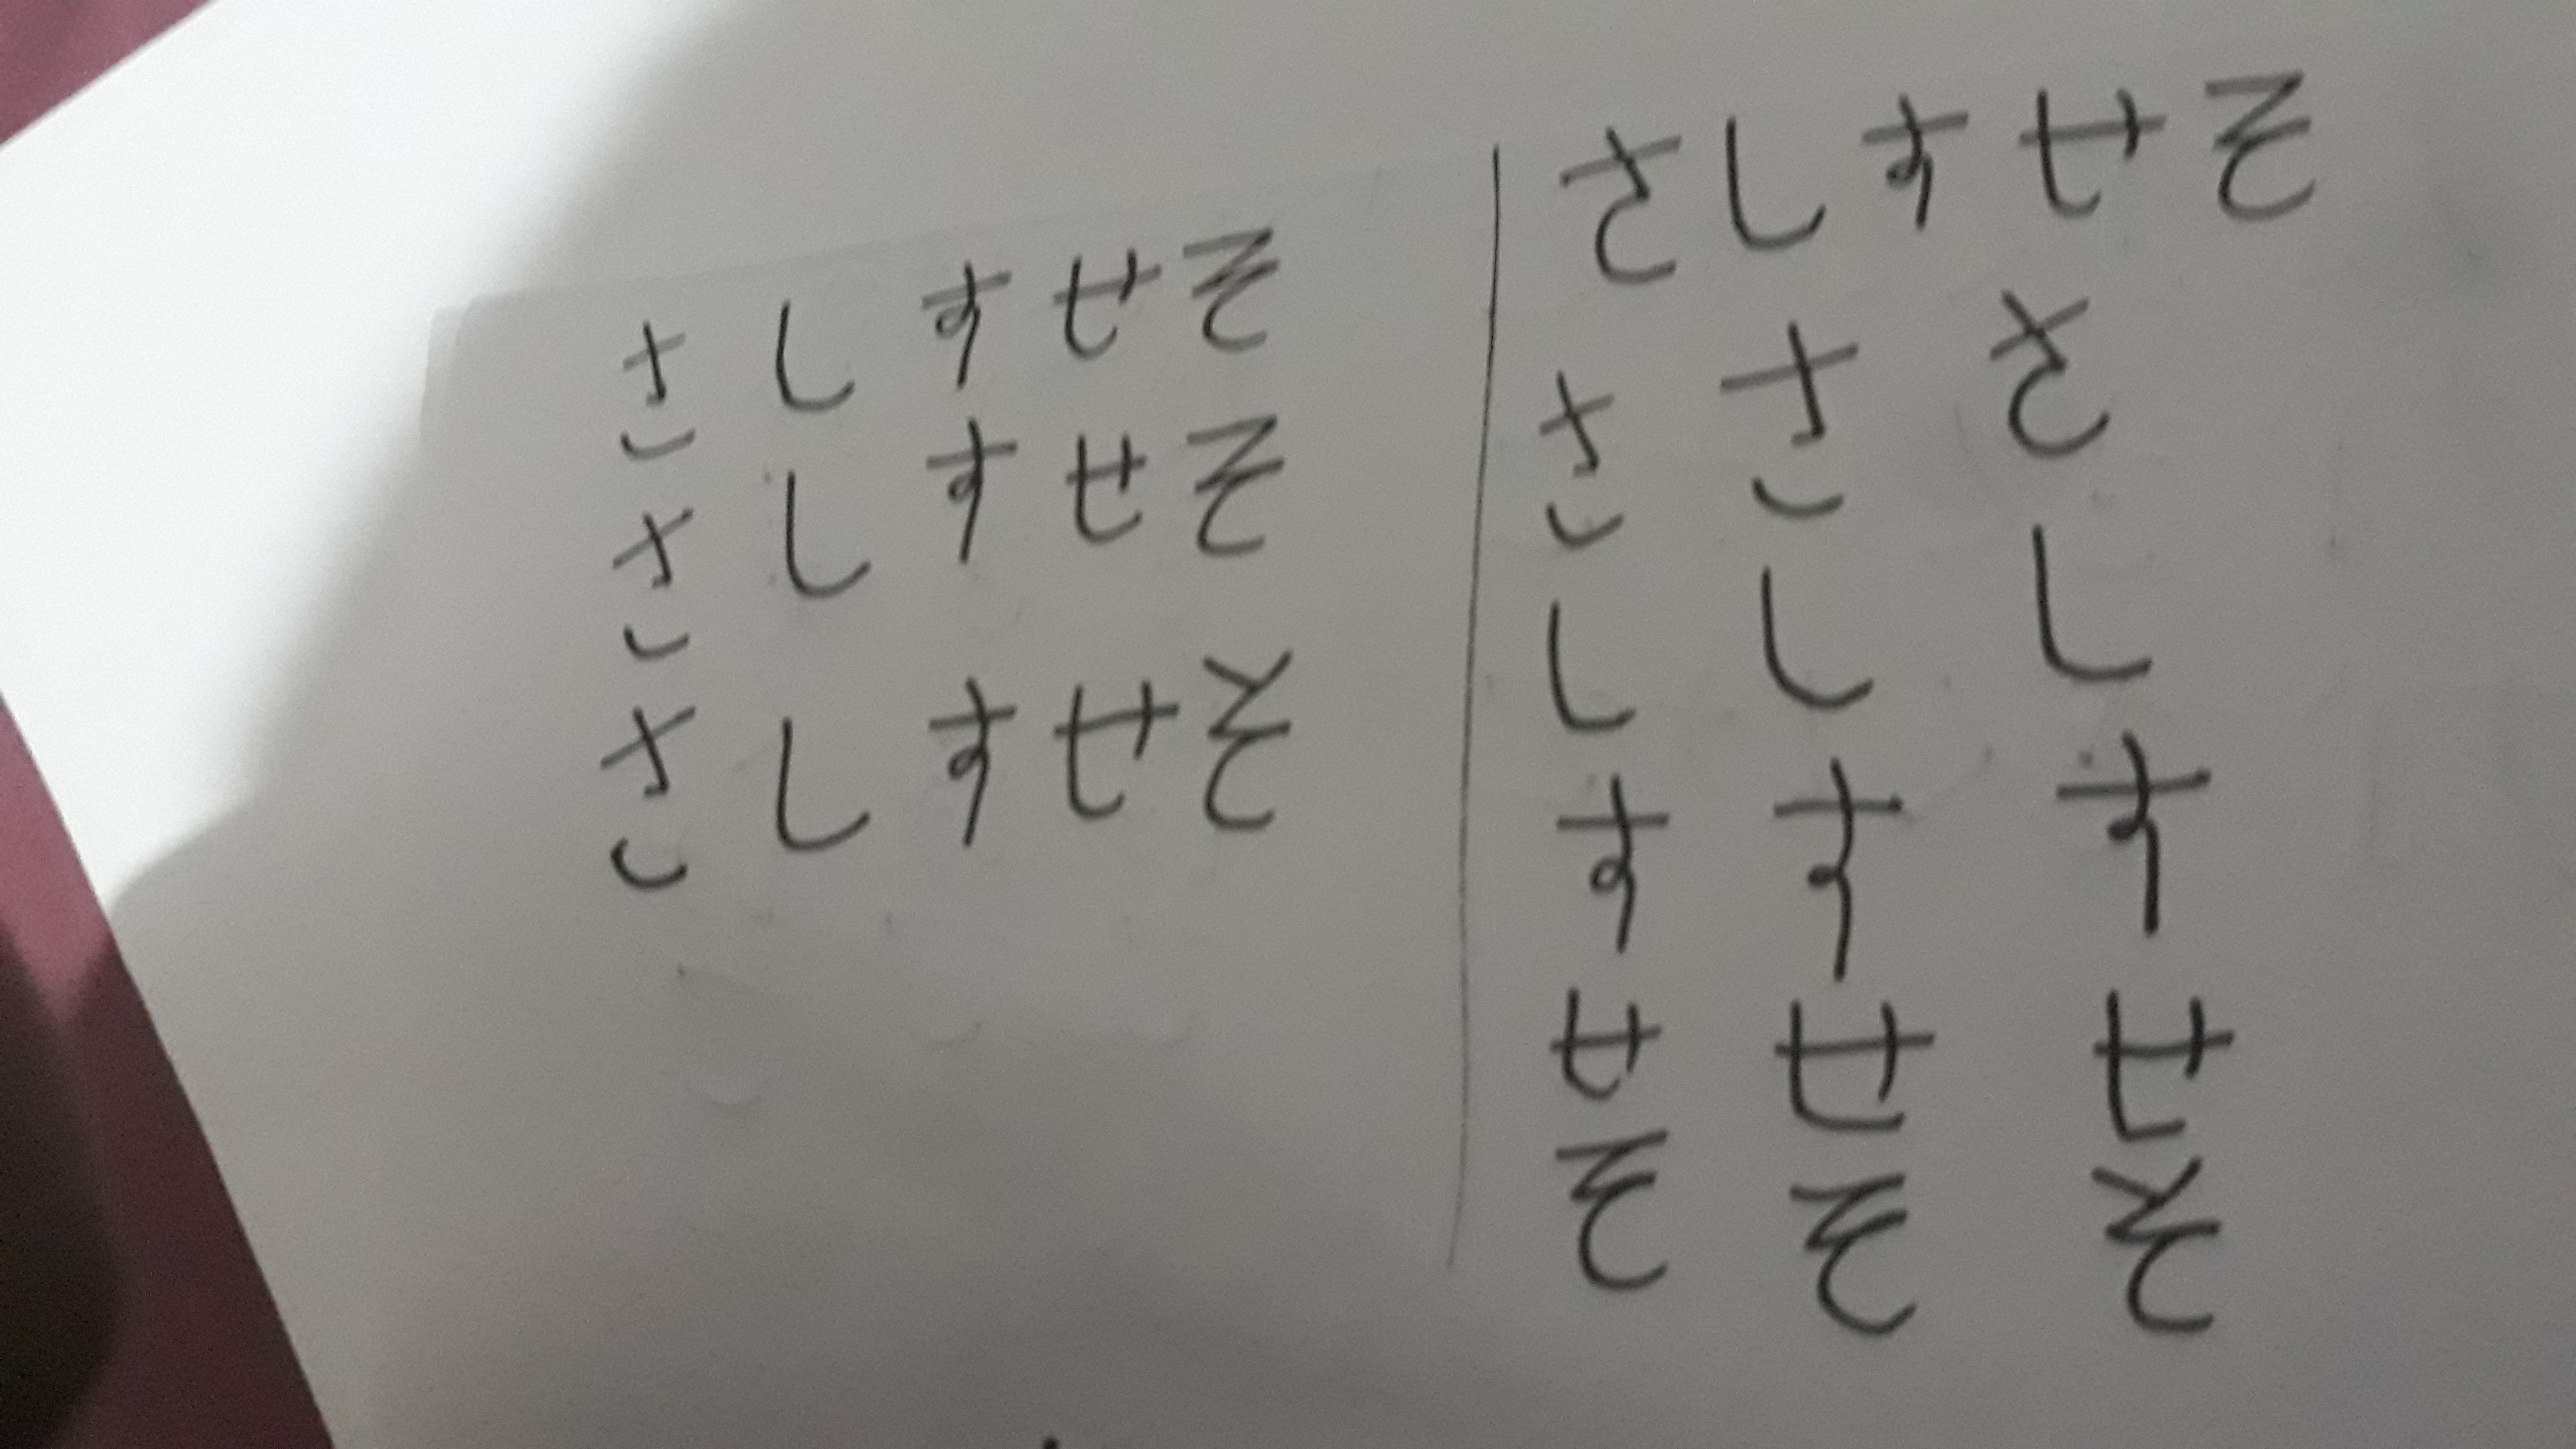 さしすせそ
さしすせそ
さしすせそ
さしすせそ
さしすせそ
さしすせそ
さしすせそ